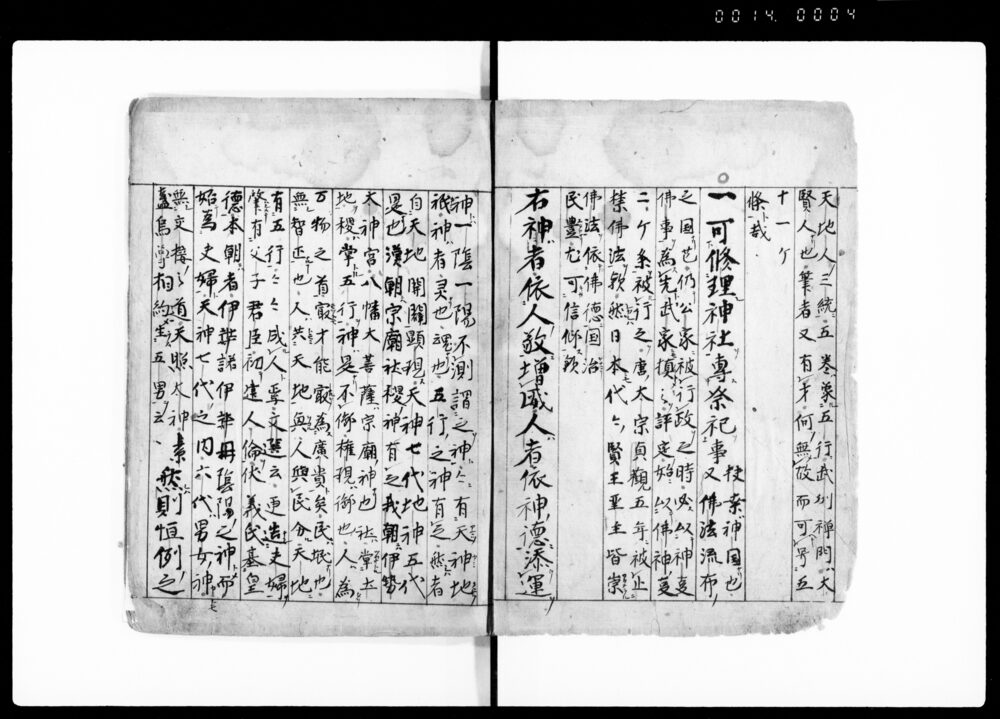 0014.0004
天地人ノ三統五卷桒五行武刕禅門大
賢人也筆者又有才何無故而可号五
十一ケ
條哉
一可修理神社專祭祀事
扶桒神国也
又佛法流布
之国芒仍公家被行政之時必以神
佛事為先武家損評定始以佛神
二ケ条被行之唐太宗貞觀五年被止
禁佛法歟然日本代々賢王聖主皆崇
佛法依佛德国治
民豊尤可信仰歟
右神者依人敬增威人者依神德添運
神一陰一陽不測謂之神々有天神地
祇神者灵也魂也五行之神有之然者
自天地開闢顕現天神七代地神五代
是也漢朝宗廟社稷神有之我朝伊勢
太神宮八幡大菩薩宗廟神也社掌土
地稷掌五行神是不御權現御也人為
万物之首最才能最為廣貴矣民珉也
無智正也人共天地與人與民分天地
有五行々々成人受文選云造夫婦
肇有父子君臣初建人倫伏義氏基皇
德本朝者伊弉諾伊弉冊陰陽之神而
始為夫婦天神七代之内六代男女神
無交接之道天照太神素
盞烏尊相約生五男云々
然則恒例之